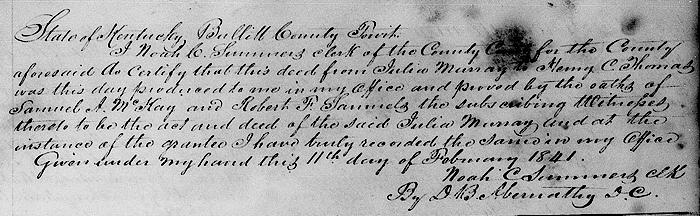 State of Kentucky Bullitt County Towit.
I Noah C. Summers clerk of the County Court for the County
aforesaid do Certify that this deed from Julia Murray to Henry C. Thomas
was this day produced to me in my Office and proved by the oaths of
Samuel A. McKay and Robert F. Samuels the subscribing Witnesses
thereto to be the act and deed of the said Julia Murray and at the
instance of the grantee I have truly recorded the same in my Office
Given under my hand this 11th day of February 1841.
Noah C Summers clk
By D. B. Abernathy D. C.